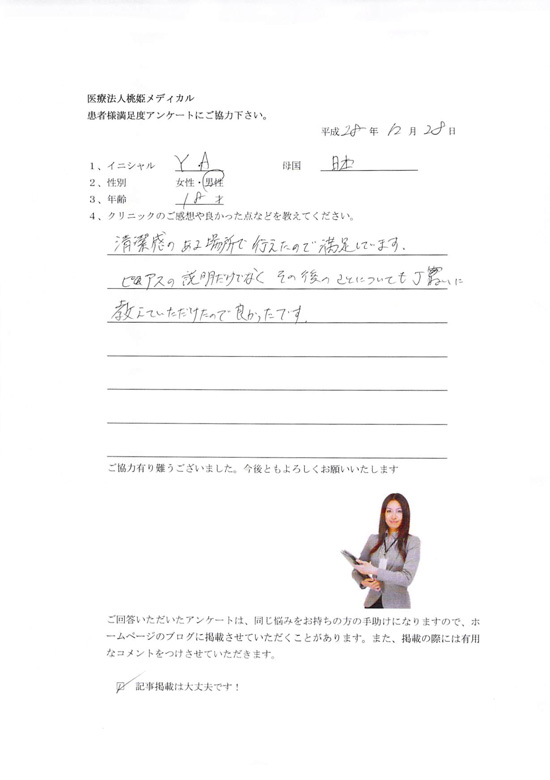 医療法人桃姫メディカル
患者様満足度アンケートにご協力下さい。
平成 28 年 12 月 28 日
1、イニシャル Y A 母国 日本
2、性別 女性・男性
3、年齢 18 才
4、クリニックのご感想や良かった点などを教えてください。
清潔感のある場所で行えたので満足しています。
ピアスの説明だけでなく その後のことについても丁寧に
教えていただけたので良かったです。
ご協力有り難うございました。今後ともよろしくお願いいたします
ご回答いただいたアンケートは、同じ悩みをお持ちの方の手助けになりますので、ホ
ームページのブログに掲載させていただくことがあります。また、掲載の際には有用
なコメントをつけさせていただきます。
☑ 記事掲載は大丈夫です！